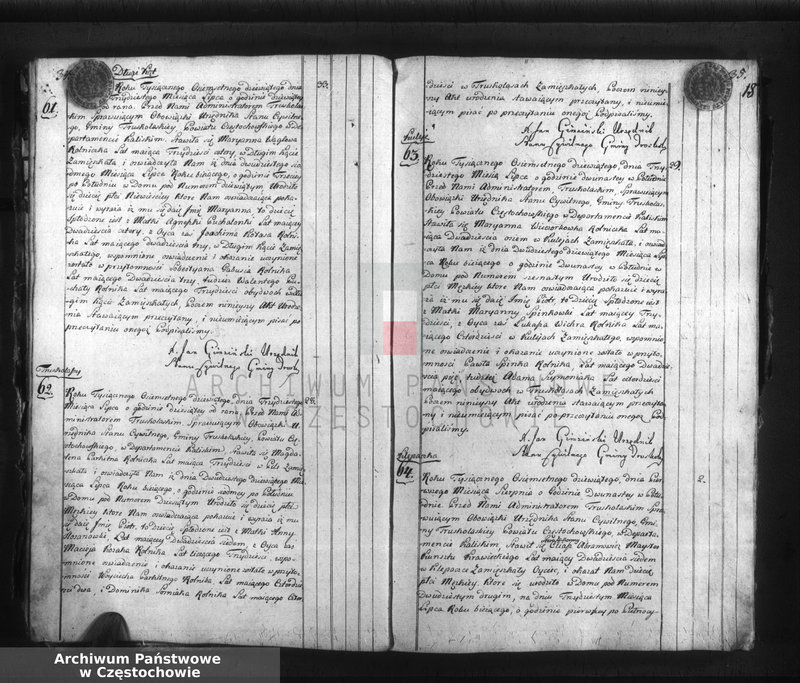 Długi Kąt
61
Roku Tysiącznego Osiemsetnego dziewiątego dnia
Trzydziestego Miesiąca Lipca o godzinie dziewiątey
od rana. Przed Nami Administratorem Truskolaskim
Sprawuiącym Obowiązki Urzędnika Stanu Cywilnego,
Gminy Truskolaskiey Powiatu Częstochoskiego w Departamencie
Kaliskim. Stawiła się Maryanna
Rolniczka Lat maiąca Trzydzieści cztery w Długim Kącie
Zamięszkała i oświadczyła Nam iż dnia dwudziestego siódmego
Miesiąca Lipca Roku bieżącego, o godzinie Trzeciey
po Południu w Domu pod Numerem dziewiątym Urodziło
się dziecię płci Niewieściey które Nam oświadczaiąca pokazuie
i wyraża iż mu się daie Jmię Maryanna, to dziecię
spłodzone iest z Matki Agnyszki Lat maiącey
Dwadzieścia cztery, z Oyca zaś Joachima Kołasa Rolnika
Lat maiącego dwadzieścia trzy, w Długim Kącie Zamięszkałego,
wspomnione oświadczenie i okazanie uczynione
zostało w przytomności Sobestyana Rolnika
Lat maiącego Dwadzieścia trzy tudzież Walentego
Rolnika Lat maiącego Trzydzieści obydwóch w Długim
Kącie Zamięszkałych, Poczem ninieyszy Akt Urodzenia
Stawaiącym przeczytany, i nieumieiącym pisać po
przeczytaniu onegoż Podpisaliśmy.
X. Jan Gizeiński Urzędnik
Stanu Cywilnego Gminy Trusk
Truskolasy
62
28.
Roku Tysiącznego Osiemsetnego dziewiątego dnia Trzydziestego
Miesiąca Lipca o godzinie dziesiątey od rana, Przed Nami Administratorem
Truskolaskim Sprawuiącym Obowiązki Urzędnika
Stanu Cywilnego, Gminy Truskolaskiey, Powiatu Częstochoskiego,
w Departamencie Kaliskim Stawiła się Magdalena
Rolniczka Lat maiąca Trzydzieści w Zamięszkała
i oświadczyła Nam iż dnia Dwudziestego dziewiątego Miesiąca
Lipca Roku bieżącego, o godzinie siódmey po Południu
w Domu pod Numerem dziesiątym Urodziło się dziecię płci
Męzkiey które Nam oświadczaiąca pokazuie i wyraża iż mu
się daie Jmię Piotr, to dziecię spłodzone iest z Matki Anny
Lat maiącey Dwadzieścia siedem, z Oyca zaś
Macieja Kołaka Rolnika Lat liczącego Trzydzieści, wspomnione
oświadczenie i okazanie uczynione zostało w przytomności
Rolnika Lat maiącego Czterdzieści
dwa, i Dominika Rolnika Lat maiącego
39.
18
dzieści w Truskolasach Zamięszkałych, Poczem ninieyszy
Akt urodzenia stawaiącym przeczytany, i nieumieiącym
pisać po przeczytaniu onegoż Podpisaliśmy.
X. Jan Gizeiński Urzędnik
Stanu Cywilnego Gminy Trusk
63.
29.
Roku Tysiącznego Osiemsetnego dziewiątego, dnia Trzydziestego
Miesiąca Lipca, o godzinie dwunastey w Południe
Przed Nami Administratorem Truskolaskim, Sprawuiącym
Obowiązki Urzędnika Stanu Cywilnego, Gminy Truskolaskiey
Powiatu Częstochoskiego w Departamencie Kaliskim
Stawiła się Maryanna Wieworkowa Rolniczka Lat maiąca
Dwadzieścia osiem w Kulejach Zamięszkała, i oświadczyła
Nam iż dnia Dwudziestego dziewiątego Miesiąca Lipca
Roku bieżącego o godzinie dwunastey w Południe w
Domu pod Numerem szesnastym Urodziło się dziecię
płci Męzkiey które Nam oświadczaiąca pokazuie i wyraża
iż mu się daie Jmię Piotr, to dziecię Spłodzone iest
z Matki Maryanny Spinkowki Lat maiącey Trzydzieści,
z Oyca zaś Łukasza Wichra Rolnika Lat maiącego
Czterdzieści w Kulejach Zamięszkałego, wspomnione
oświadczenie i okazanie uczynione zostało w przytomności
Pawła Spinka Rolnika Lat maiącego Dwadzieścia
pięć, tudzież Adama Szymoniaka Lat czterdzieści
maiącego obydwóch w Truskolasach Zamięszkałych
Poczem ninieyszy Akt urodzenia stawaiącym przeczytany
i nieumieiącym pisać po przeczytaniu onegoż Podpisaliśmy.
X. Jan Gizeiński Urzędnik
Stanu Cywilnego Gminy Trusk
64.
2.
Roku Tysiącznego Osiemsetnego dziewiątego dnia Pierwszego
Miesiąca Sierpnia o Godzinie Dwunastey w Południe
Przed Nami Administratorem Truskolaskim Sprawuiącym
Obowiązki Urzędnika Stanu Cywilnego, Gminy
Truskolaskiey Powiatu Częstochowskiego, w Departamencie
Kaliskim, Stawił się Eliasz Abramowicz Mayster
Kunsztu Krawieckiego Lat maiący Dwadzieścia siedem
w Zamięszkały Oyciec, i okazał Nam dziecię
płci Męzkiey które się urodziło w Domu pod Numerem
Dwudziestym drugim, na dniu Trzydziestym Miesiąca
Lipca Roku bieżącego, o godzinie pierwszey po Północy
ARCHIWUM PAŃSTWOWE
W CZĘSTOCHOWIE
Archiwum Państwowe
w Częstochowie